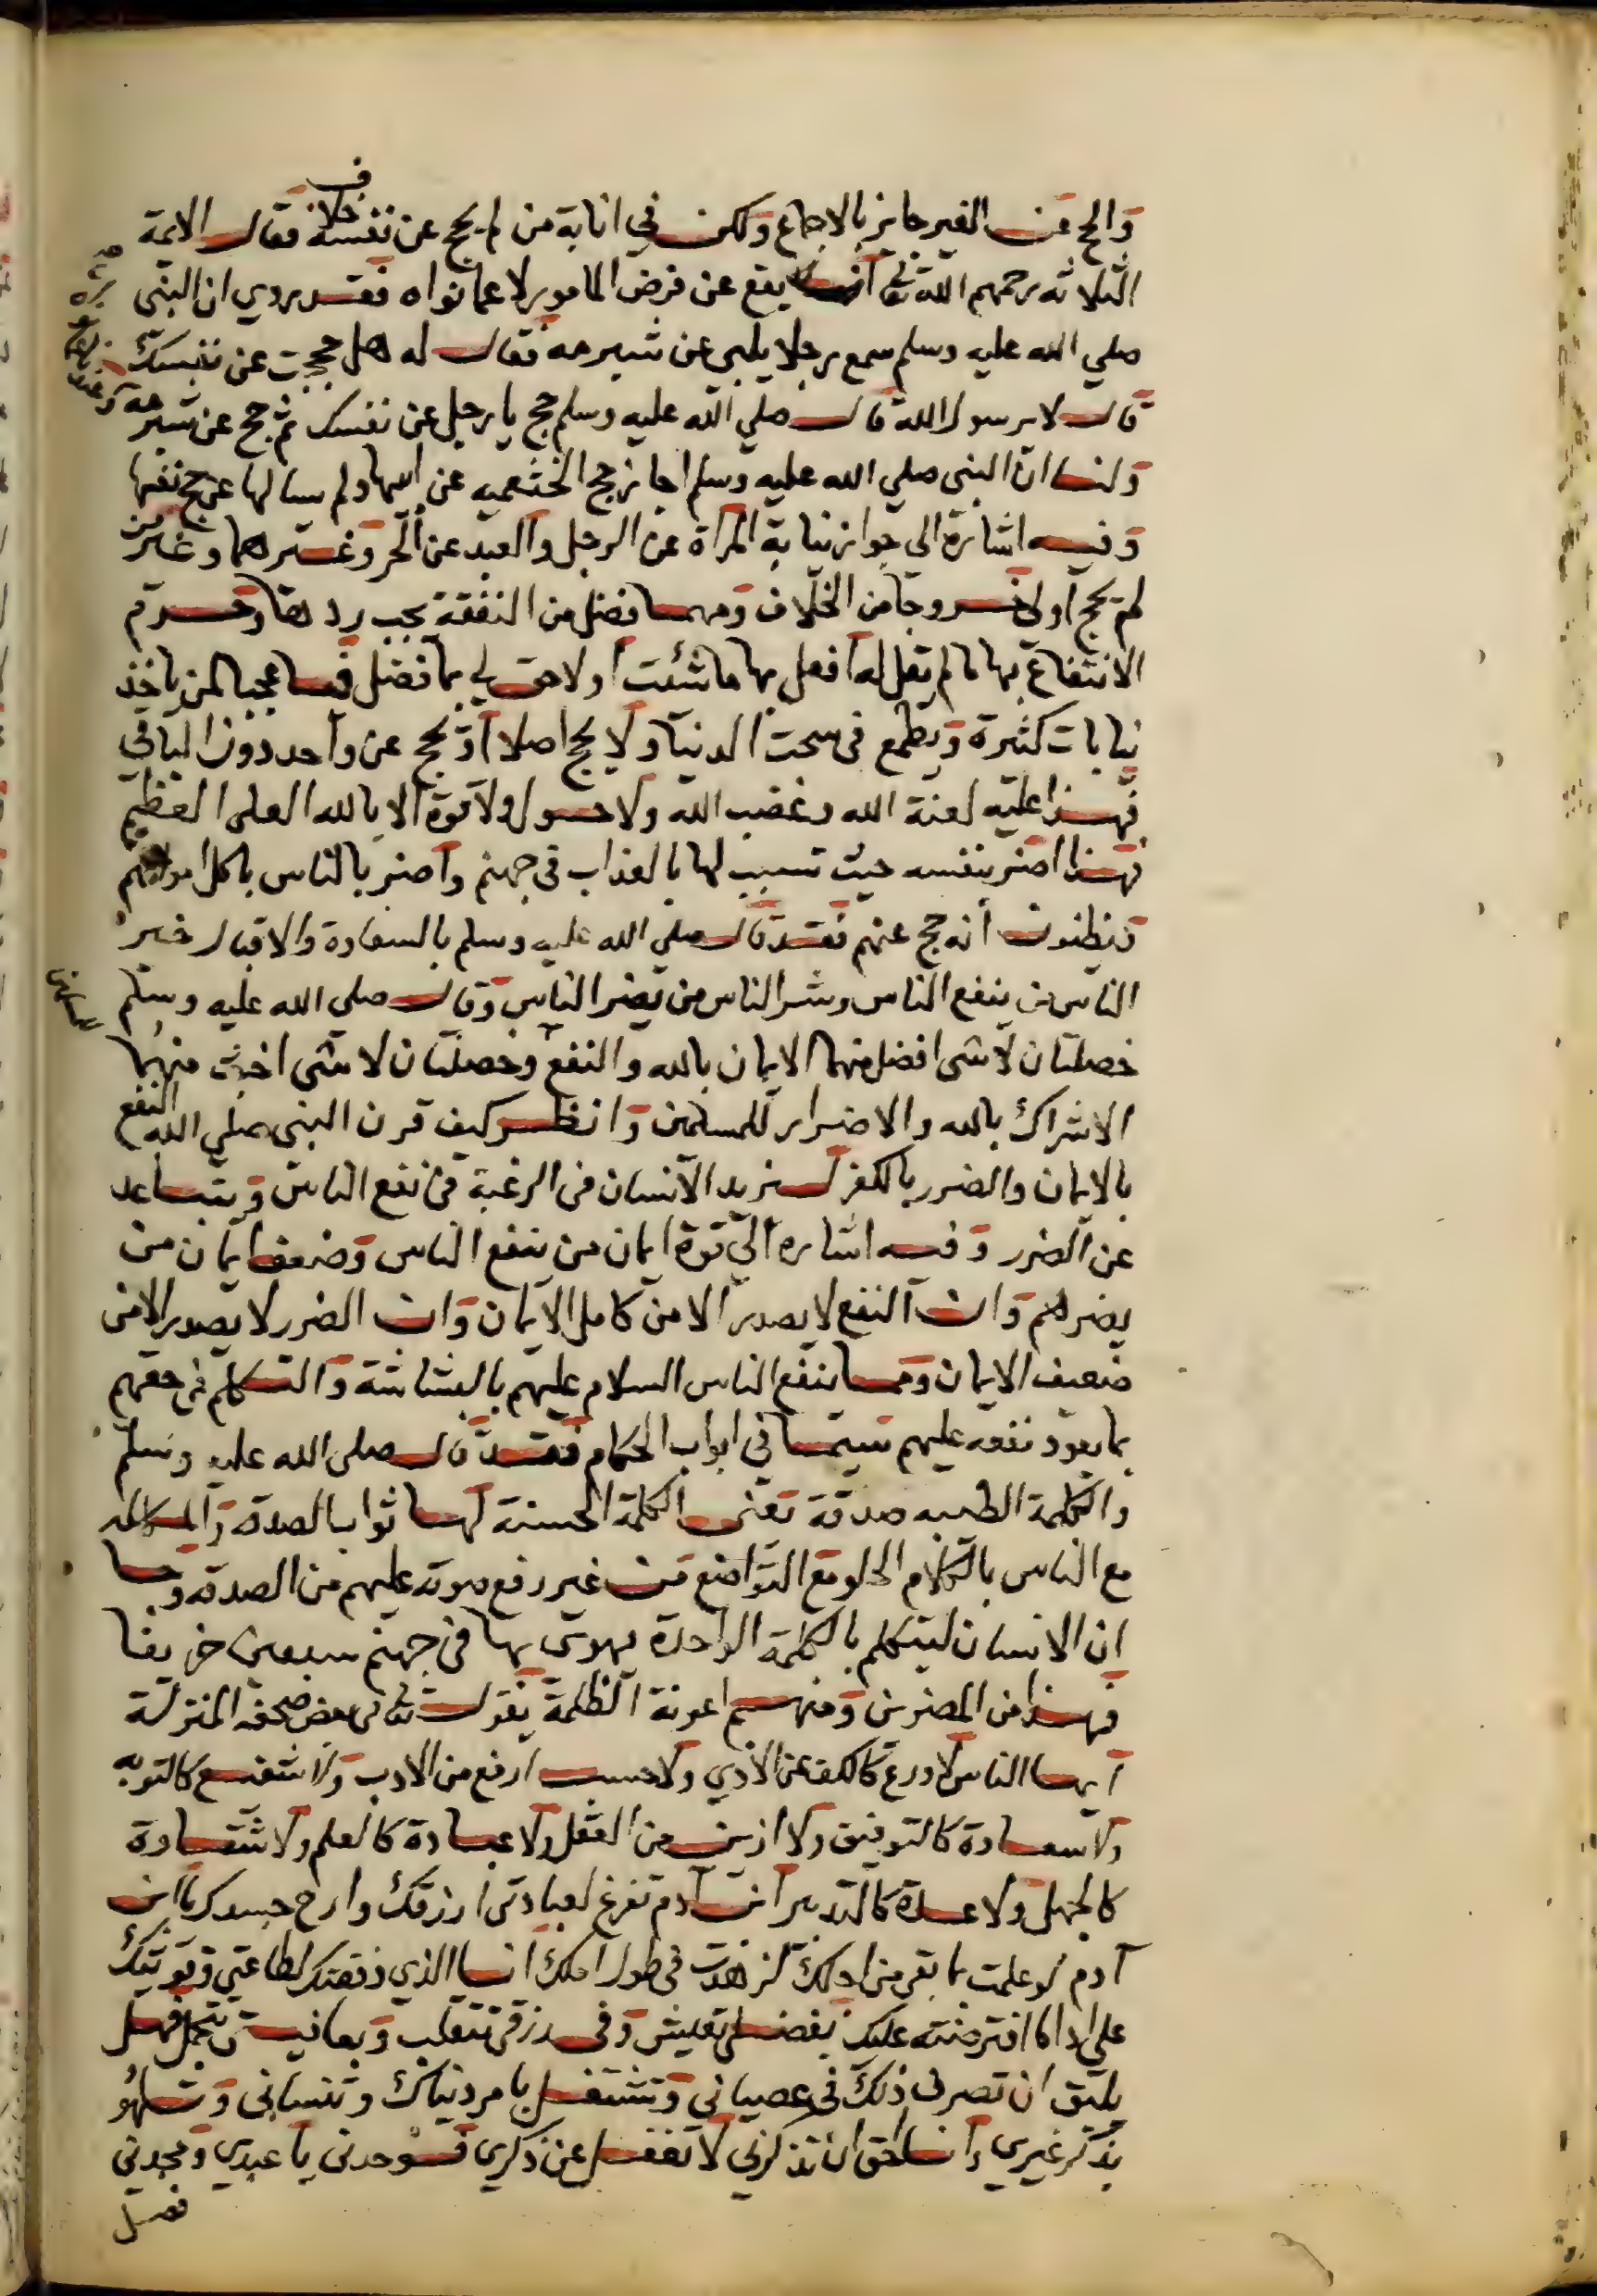 والحج عن الغير جايز بالاجماع ولكن في انابة من لم يحج عن نفسه خلاف فقال الايمة
الثلاثه رحمهم الله تعا انه يقع عن فرض المامور لا عما نواه فقد روي ان النبي
صلي الله عليه وسلم سمع رجلا يلبي عن شبرمه فقال له هل حججت عن نفسك
قال لا يرسول الله قال صلي الله عليه وسلم حج يا رجل عن نفسك ثم حج عن شبرمه
ولنا ان النبي صلي الله عليه وسلم اجاز حج الخثعميه عن ابيها ولم يسالها عن حج نفسها
وفيه اشارة الي جواز نيابة المراة عن الرجل والعبد عن الحر وغيرهما وغير من
لم يحج اولي خروجا من الخلاف ومهما فضل من النفقة يجب ردها وحرم
الانتفاع بها ما لم يقل له افعل بها ما شئت اولا حق لي بما فضل فيا عجبا لمن ياخذ
نيابات كثيرة ويطمع في سحت الدنيا ولا يحج اصلا او يحج عن واحد دون الباقي
فهذا عليه لعنة الله وغضب الله ولا حول ولا قوة الا بالله العلي العظيم
فهذا اضر بنفسه حيث تسبب لها بالعذاب في جهنم واضر بالناس باكل اموالهم
فيظنون أنه حج عنهم فقد قال صلي الله عليه وسلم بالسعادة والاقبال خير
الناس من ينفع الناس وشر الناس من يضر الناس وقال صلي الله عليه وسلم
خصلتان لا شي افضل منهما الايمان بالله والنفع وخصلتان لا شي اخبث منهما
الاشراك بالله والاضرار للمسلمين وانظر كيف قرن النبي صلي الله النفع
بالايمان والضرر بالكفر ليزيد الانسان في الرغبة في نفع الناس ويتباعد
عن الضرر وفيه اشاره الي قوة ايمان من ينفع الناس وضعف ايمان من
يضرهم وان النفع لا يصدر الا من كامل الايمان وان الضرر لا يصدر الا من
ضعيف الايمان ومما ينفع الناس السلام عليهم بالبشاشة والتكلم في حقهم
بما يعود نفعه عليهم سيما في ابواب الحكام فقد قال صلي الله عليه وسلم
والكلمة الطيبه صدقة يعني الكلمة الحسنة لها ثواب الصدقة والمكالمه
مع الناس بالكلام الحلو مع التواضع من غير رفع صوته عليهم من الصدقه وجا
ان الانسان ليتكلم بالكلمة الواحدة يهوي بها في جهنم سبعين خريفا
فهذا من المضرين ومنهم اعونة الظلمة يقول تعا في بعض صحفه المنزلة
ايها الناس لا ورع كالكف عن الاذي ولا حسب ارفع من الادب ولا شفيع كالتوبه
ولا سعادة كالتوفيق ولا ازين من العقل ولا عبادة كالعلم ولا شقاوة
كالجهل ولا عبادة كالتدبير ابن آدم تفرغ لعبادتي ارزقك وارح جسدك يا ابن
آدم لو علمت ما بقي من اجلك لزهدت في طول املك انا الذي وفقتك لطاعتي وقويتك
علي اداء ما افترضته عليك بفضلي تعيش وفي رزقي تتقلب وبعافيتي تتجمل فهل
يليق ان تصرف ذلك في عصياني وتشتغل بامر دنياك وتنساني وتلهو
بذكر غيري وانا احق ان تذكرني لا تغفل عن ذكري فوحدني يا عبدي ومجدني
فصل